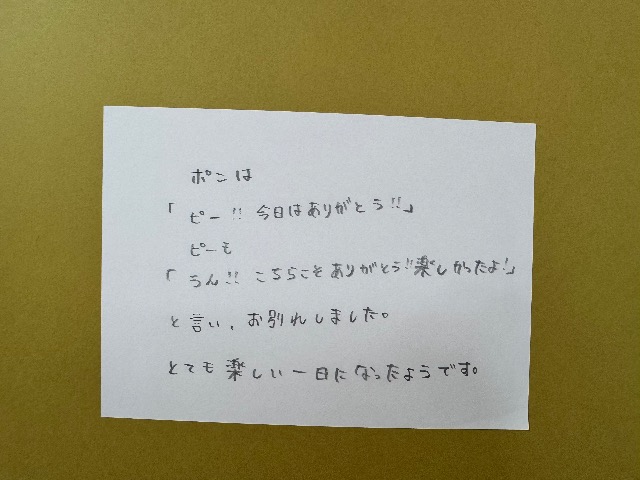 ポンは
「ピー!! 今日はありがとう!!」
ピーも
「うん!! こちらこそありがとう!!楽しかったよ!」
と言い、お別れしました。
とても楽しい一日になったようです。